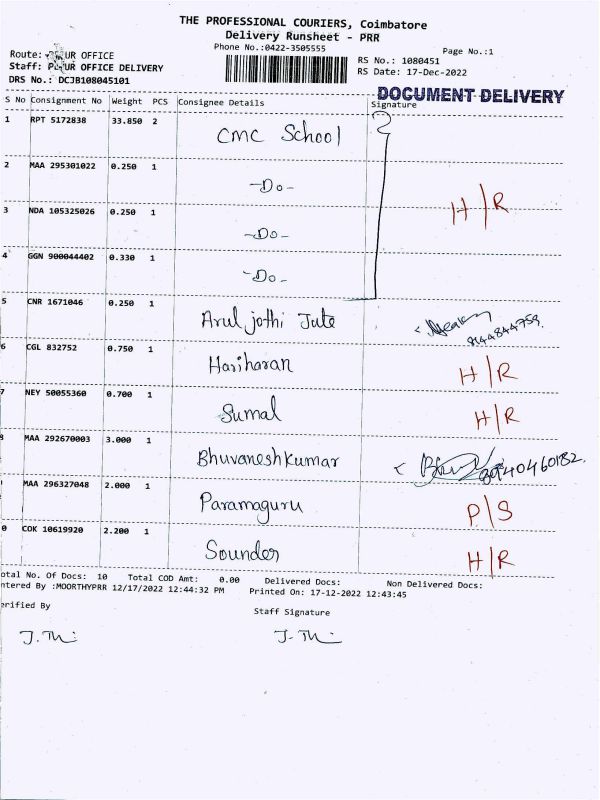 THE PROFESSIONAL COURIERS, Coimbatore
Delivery Runsheet - PRR
Phone No.:0422-3505555
Page No.:1
Route: UR OFFICE
RS No.: 1080451
Staff: UR OFFICE DELIVERY
RS Date: 17-Dec-2022
DRS No.: DCJB108045101
DOCUMENT DELIVERY
S No Consignment No Weight PCS Consignee Details Signature
1 RPT 5172838 33.850 2 CMC School
2 MAA 295301022 0.250 1 -Do- H/R
3 NDA 105325026 0.250 1 -Do-
4 GGN 900044402 0.330 1 -Do-
5 CNR 1671046 0.250 1 Arul jothi Jute
6 CGL 832752 0.750 1 Hariharan H/R
7 NEY 50055360 0.700 1 Sumal H/R
MAA 292670003 3.000 1 Bhuvaneshkumar
MAA 296327048 2.000 1 Paramaguru P/S
0 COK 10619920 2.200 1 Sounder H/R
otal No. Of Docs: 10 Total COD Amt: 0.00 Delivered Docs: Non Delivered Docs:
ntered By :MOORTHYPRR 12/17/2022 12:44:32 PM Printed On: 17-12-2022 12:43:45
erified By Staff Signature